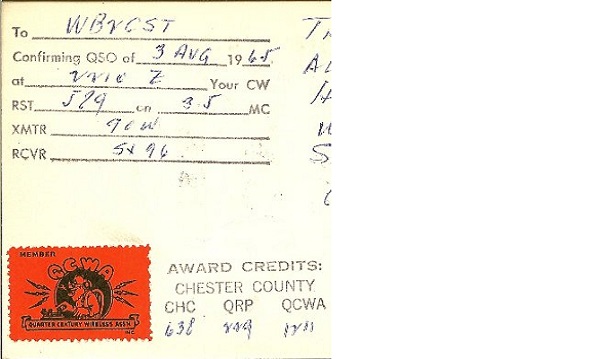 To WB2CST
Confirming QSO of 3 AUG 1965
at 2210 Z Your CW
RST 579 on 3.5 MC
XMTR 90W
RCVR SX 96
MEMBER
QCWA
QUARTER CENTURY WIRELESS ASSN.
INC.
AWARD CREDITS:
CHESTER COUNTY
CHC QRP QCWA
638